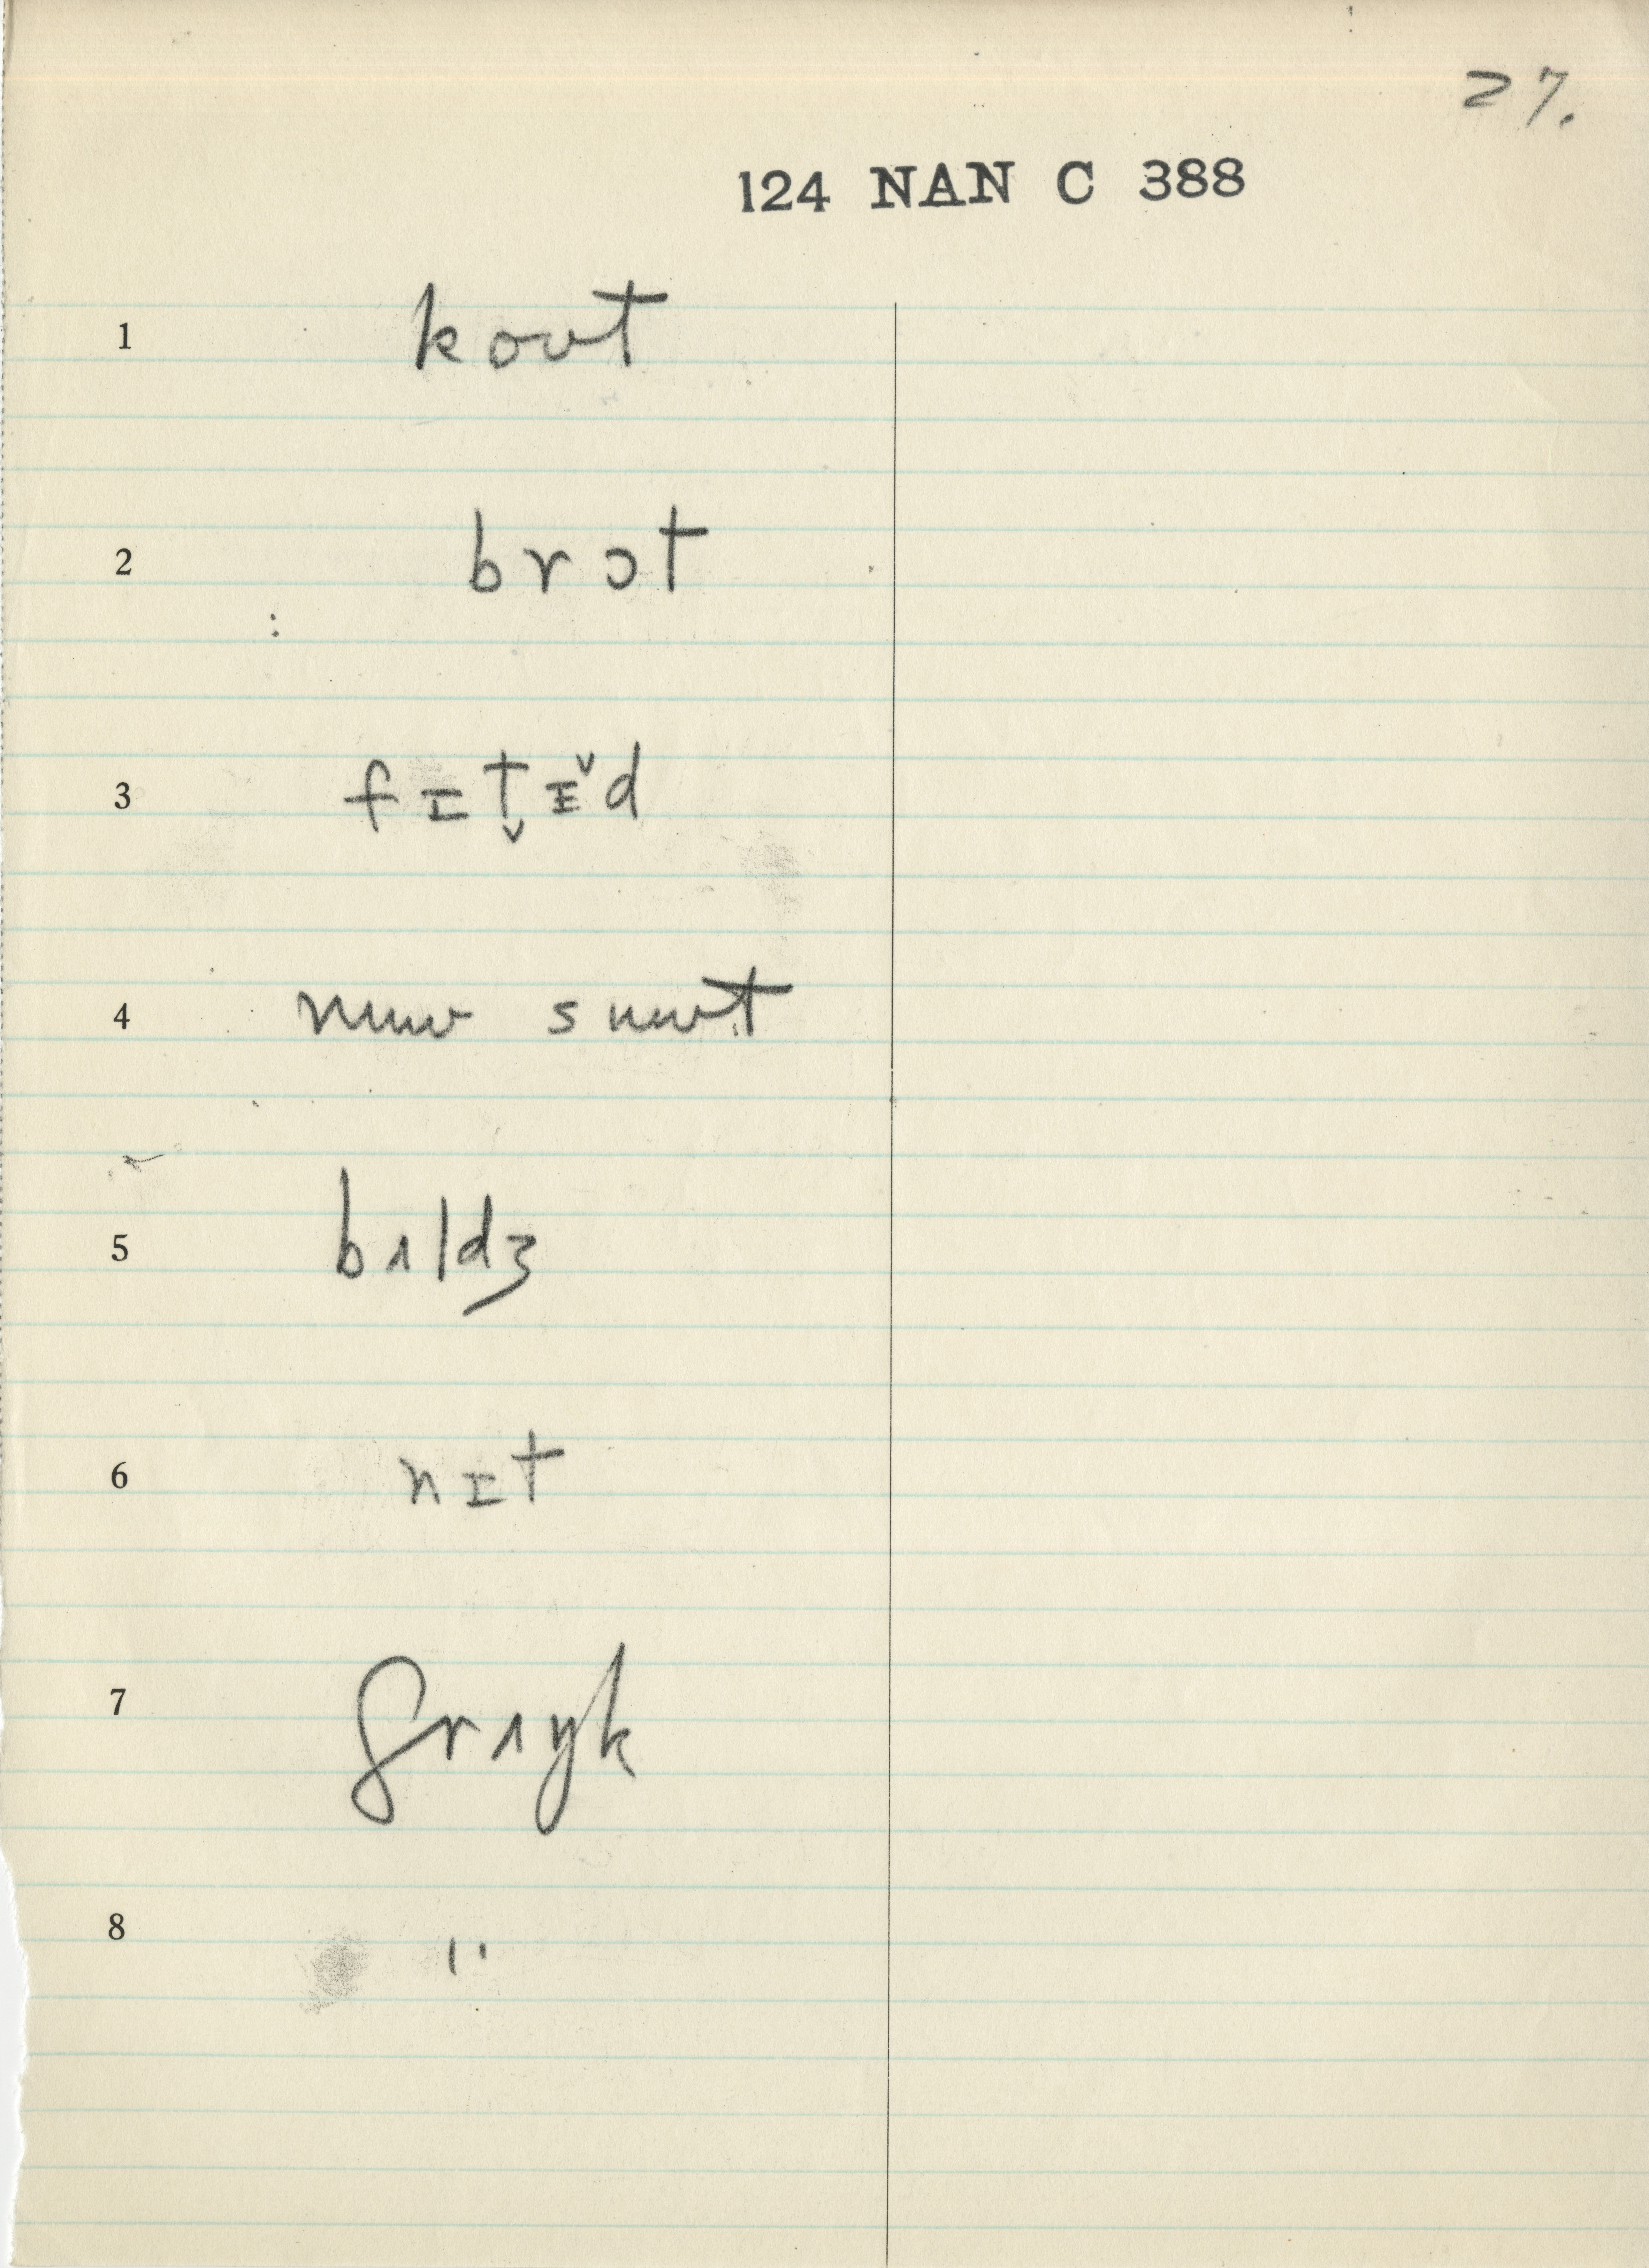 27.
124 NAN C 388
1 koʊt
2 brɔt
3 fɪt̬ɨ̌d
4 nɪuu suut
5 bɪldʒ
6 nɪt
7 ʃrɪŋk
8 "